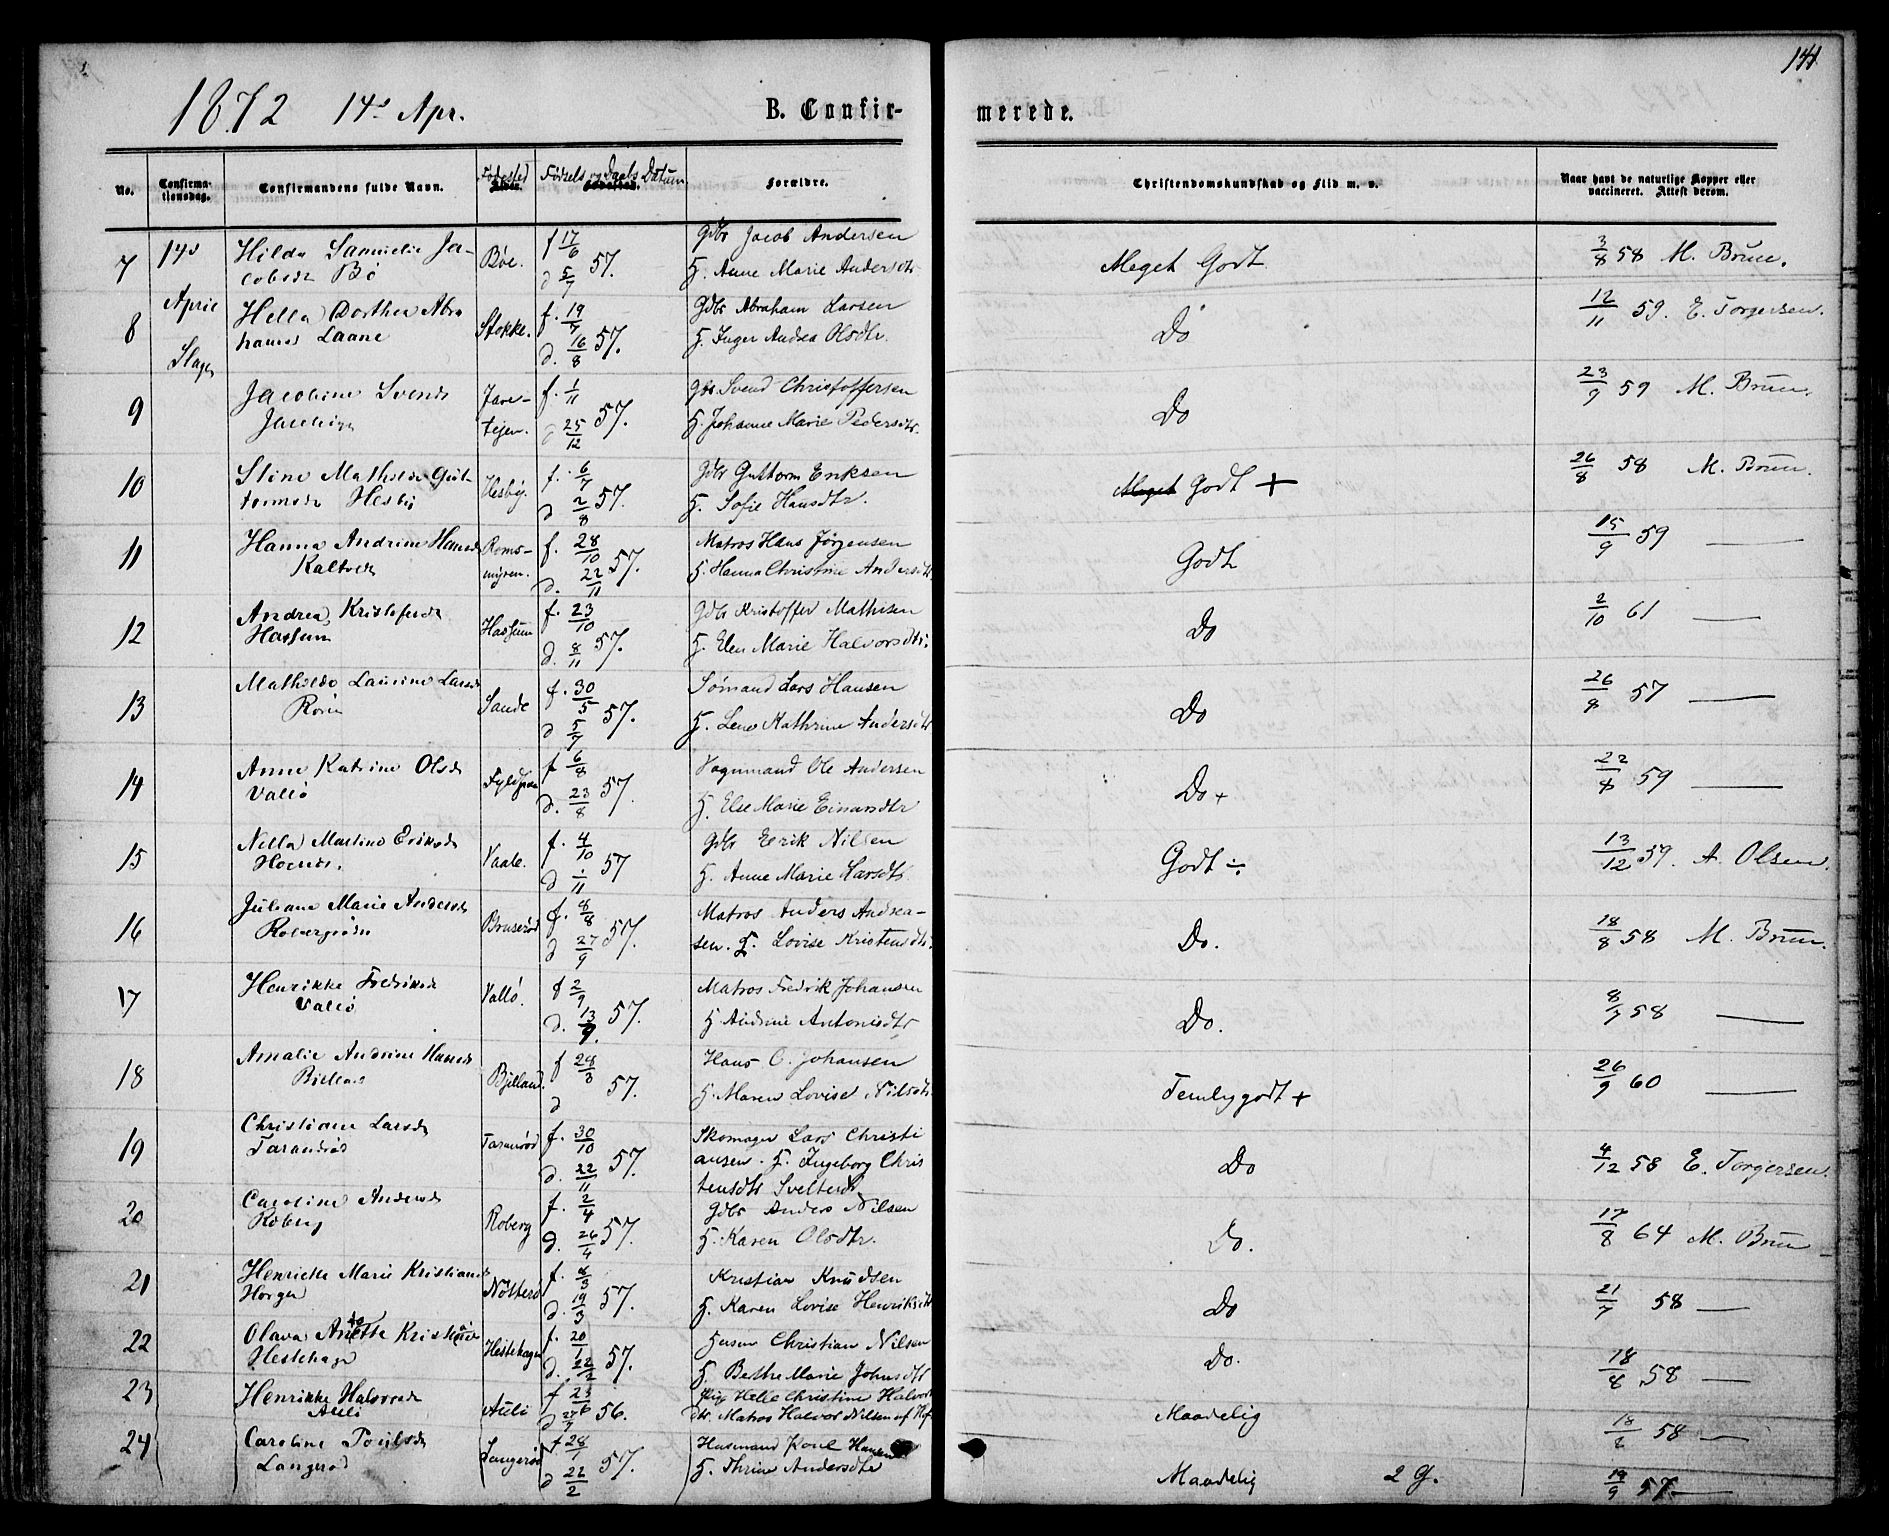 141
1872 14de Apr.
B. Confirmerede.
No.
Confirmationsdag.
Confirmandens fulde Navn.
Fødested
Fødsels og Daabs Datum
Forældre.
Christendomskundskab og Flid m. v.
Naar havt de naturlige Kopper eller vaccineret. Attest derom.
7 14de Hilda Samuelie Ja- Bøe. f 17/6 57. Gdbr Jacob Andersen Meget Godt 3/8 58 M. Bruun.
cobsdr Bø d 5/7 H. Anne Marie Andersdtr
8 April Hella Dorthea Abra Stokke. f. 19/7 57. Gdbr Abraham Larsen Do 12/11 59. E. Torgersen.
hamsd Laane d. 16/8 H. Inger Andrea Olsdtr.
Slagen
9 Jacobine Svends Jare- f. 1/11 57. Gbr Svend Christoffersen Do 23/9 59 M. Bruun.
tejen. d 25/12 H. Johanne Marie Pedersdtr.
10 Stine Mathilde Gut Hesby. f. 6/7 57. Gdbr Guttorm Eriksen Meget Godt + 26/8 58 M. Bruun.
tormsdr Hesby d 2/8 H. Sofie Hansdtr.
11 Hanna Andrine Hansd Roms- f. 28/10 57. Matros Hans Jørgensen Godt 15/9 59 —
Kaltved myren. d. 22/11 H. Hanna Christine Andersdtr
12 Andrea Kristofersdr Hassum f. 23/10 57. Gdbr Kristoffer Mathisen Do 2/10 61 —
Hassum d. 8/11 H. Elen Marie Halvorsdtr.
13 Mathilde Laurine Larsd Sande f. 30/5 57. Sømand Lars Hansen Do 26/8 57 —
d 5/7 H. Lene Kathrine Andersdtr
14 Anne Katrine Olsdr f 6/8 57. Vognmand Ole Andersen Do + 22/8 59 —
Vallø d. 23/8 H. Else Marie Einarsdtr
15 Nilla Martine Eriksdr Vaale. f. 4/10 57 Gdbr Eerik Nilsen Godt ÷ 13/12 59. A. Olsen.
d 1/11 H. Anne Marie Larsdtr.
16 Juliane Marie Andersdr Bruserød f. 8/8 57. Matros Anders Andrea- Do. 18/8 58 M. Bruun.
d 27/9 sen. H. Lovise Kristensdtr.
17 Henrikke Fredriksdr Vallø. f 2/9 57. Matros Fredrik Johansen Do. 8/7 58 —
Vallø d. 13/9. H Andrine Antonisdtr
18 Amalie Andrine Hansdr Bjelland. f 28/3 57. Hans C. Johansen Temlig godt + 26/9 60 —
d H. Maren Lovise Nilsdtr.
19 Christiane Larsdr Taranrød f. 30/10 57. Skomager Lars Christi Do 4/12 58 E. Torgersen.
Taranrød d. 22/11 ansen. H. Ingeborg Chris
tensdtr
20 Caroline Andersdr Roberg f. 2/4 57. Gdbr Anders Nilsen Do. 17/8 64 M. Bruun
Roberg d. 26/4 H. Karen Olsdtr.
21 Henriette Marie Kristians Nøtterø f. 8/3 57. Kristian Knudsen Do 21/7 58 —
Horgen d. 19/3 H. Karen Lovise Henriksdtr
22 Olava Anette Hestehagen f. 20/1 57. Christian Nilsen Do. 18/8 58 —
Hestehagen d. 22/2 H. Berthe Marie Johnsdtr
23 Henrikke Halvorsdr Auli f 23/6 56. Pige Helle Christine Halvors Maadelig 58 —
Auli d 27/7 dtr. Matros Halvor Nilsen
24 Caroline Poulsdr Langerød f 28/1 57. Husmand Poul Hansen Maadelig 2 G. 19/9 57. —
Langerød d 22/2 H. Thrine Andersdtr